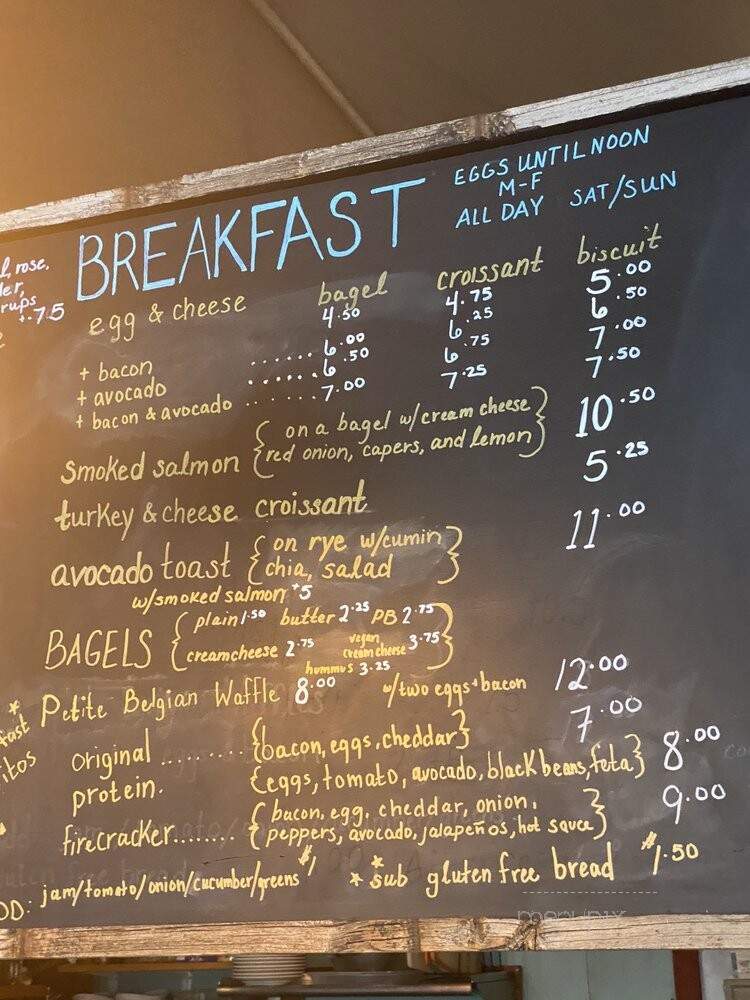 BREAKFAST
EGGS UNTIL NOON
M-F
ALL DAY SAT/SUN
rose,
+.75
egg & cheese bagel croissant biscuit
4.50 4.75 5.00
+ bacon ...... 6.00 6.25 6.50
+ avocado ...... 6.50 6.75 7.00
+ bacon & avocado ...... 7.00 7.25 7.50
smoked salmon { on a bagel w/cream cheese
red onion, capers, and lemon } 10.50
turkey & cheese croissant 5.25
avocado toast { on rye w/cumin
chia, salad } 11.00
w/smoked salmon +5
BAGELS { plain 1.50 butter 2.25 PB 2.75
creamcheese 2.75 vegan creamcheese 3.75
hummus 3.25 }
Petite Belgian Waffle 8.00 w/two eggs+bacon 12.00
original ......... {bacon, eggs, cheddar} 7.00
protein. {eggs, tomato, avocado, black beans, feta} 8.00
firecracker........ { bacon, egg, cheddar, onion,
peppers, avocado, jalapeños, hot sauce } 9.00
jam/tomato/onion/cucumber/greens $1
* sub gluten free bread $1.50
menupix